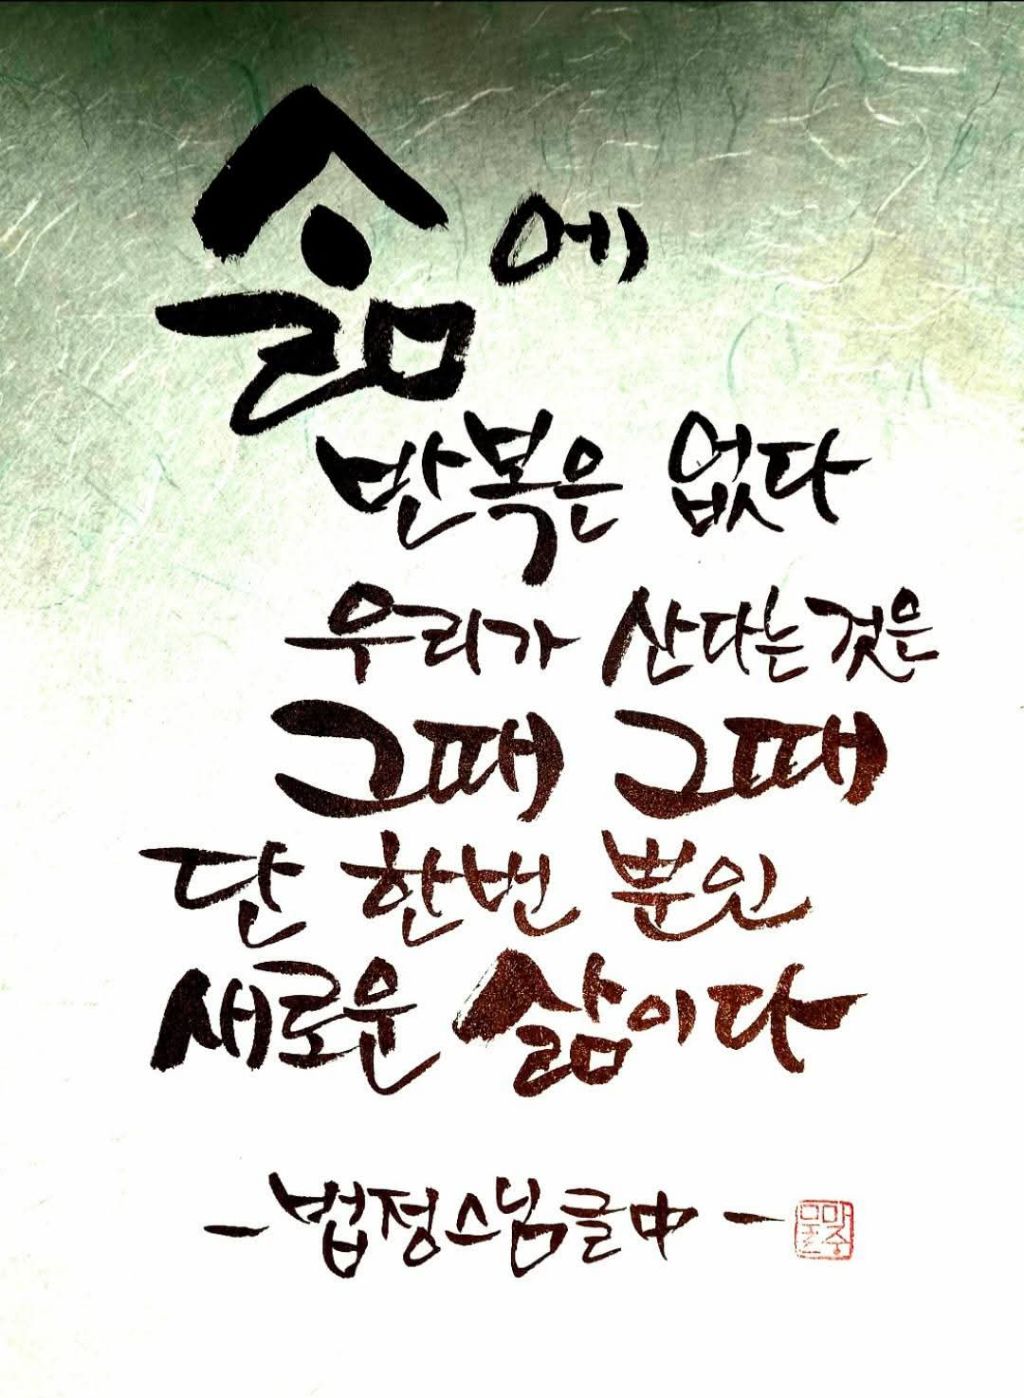 삶에
반복은 없다
우리가 산다는것은
그때 그때
단 한번 뿐인
새로운 삶이다
- 법정스님글中 -